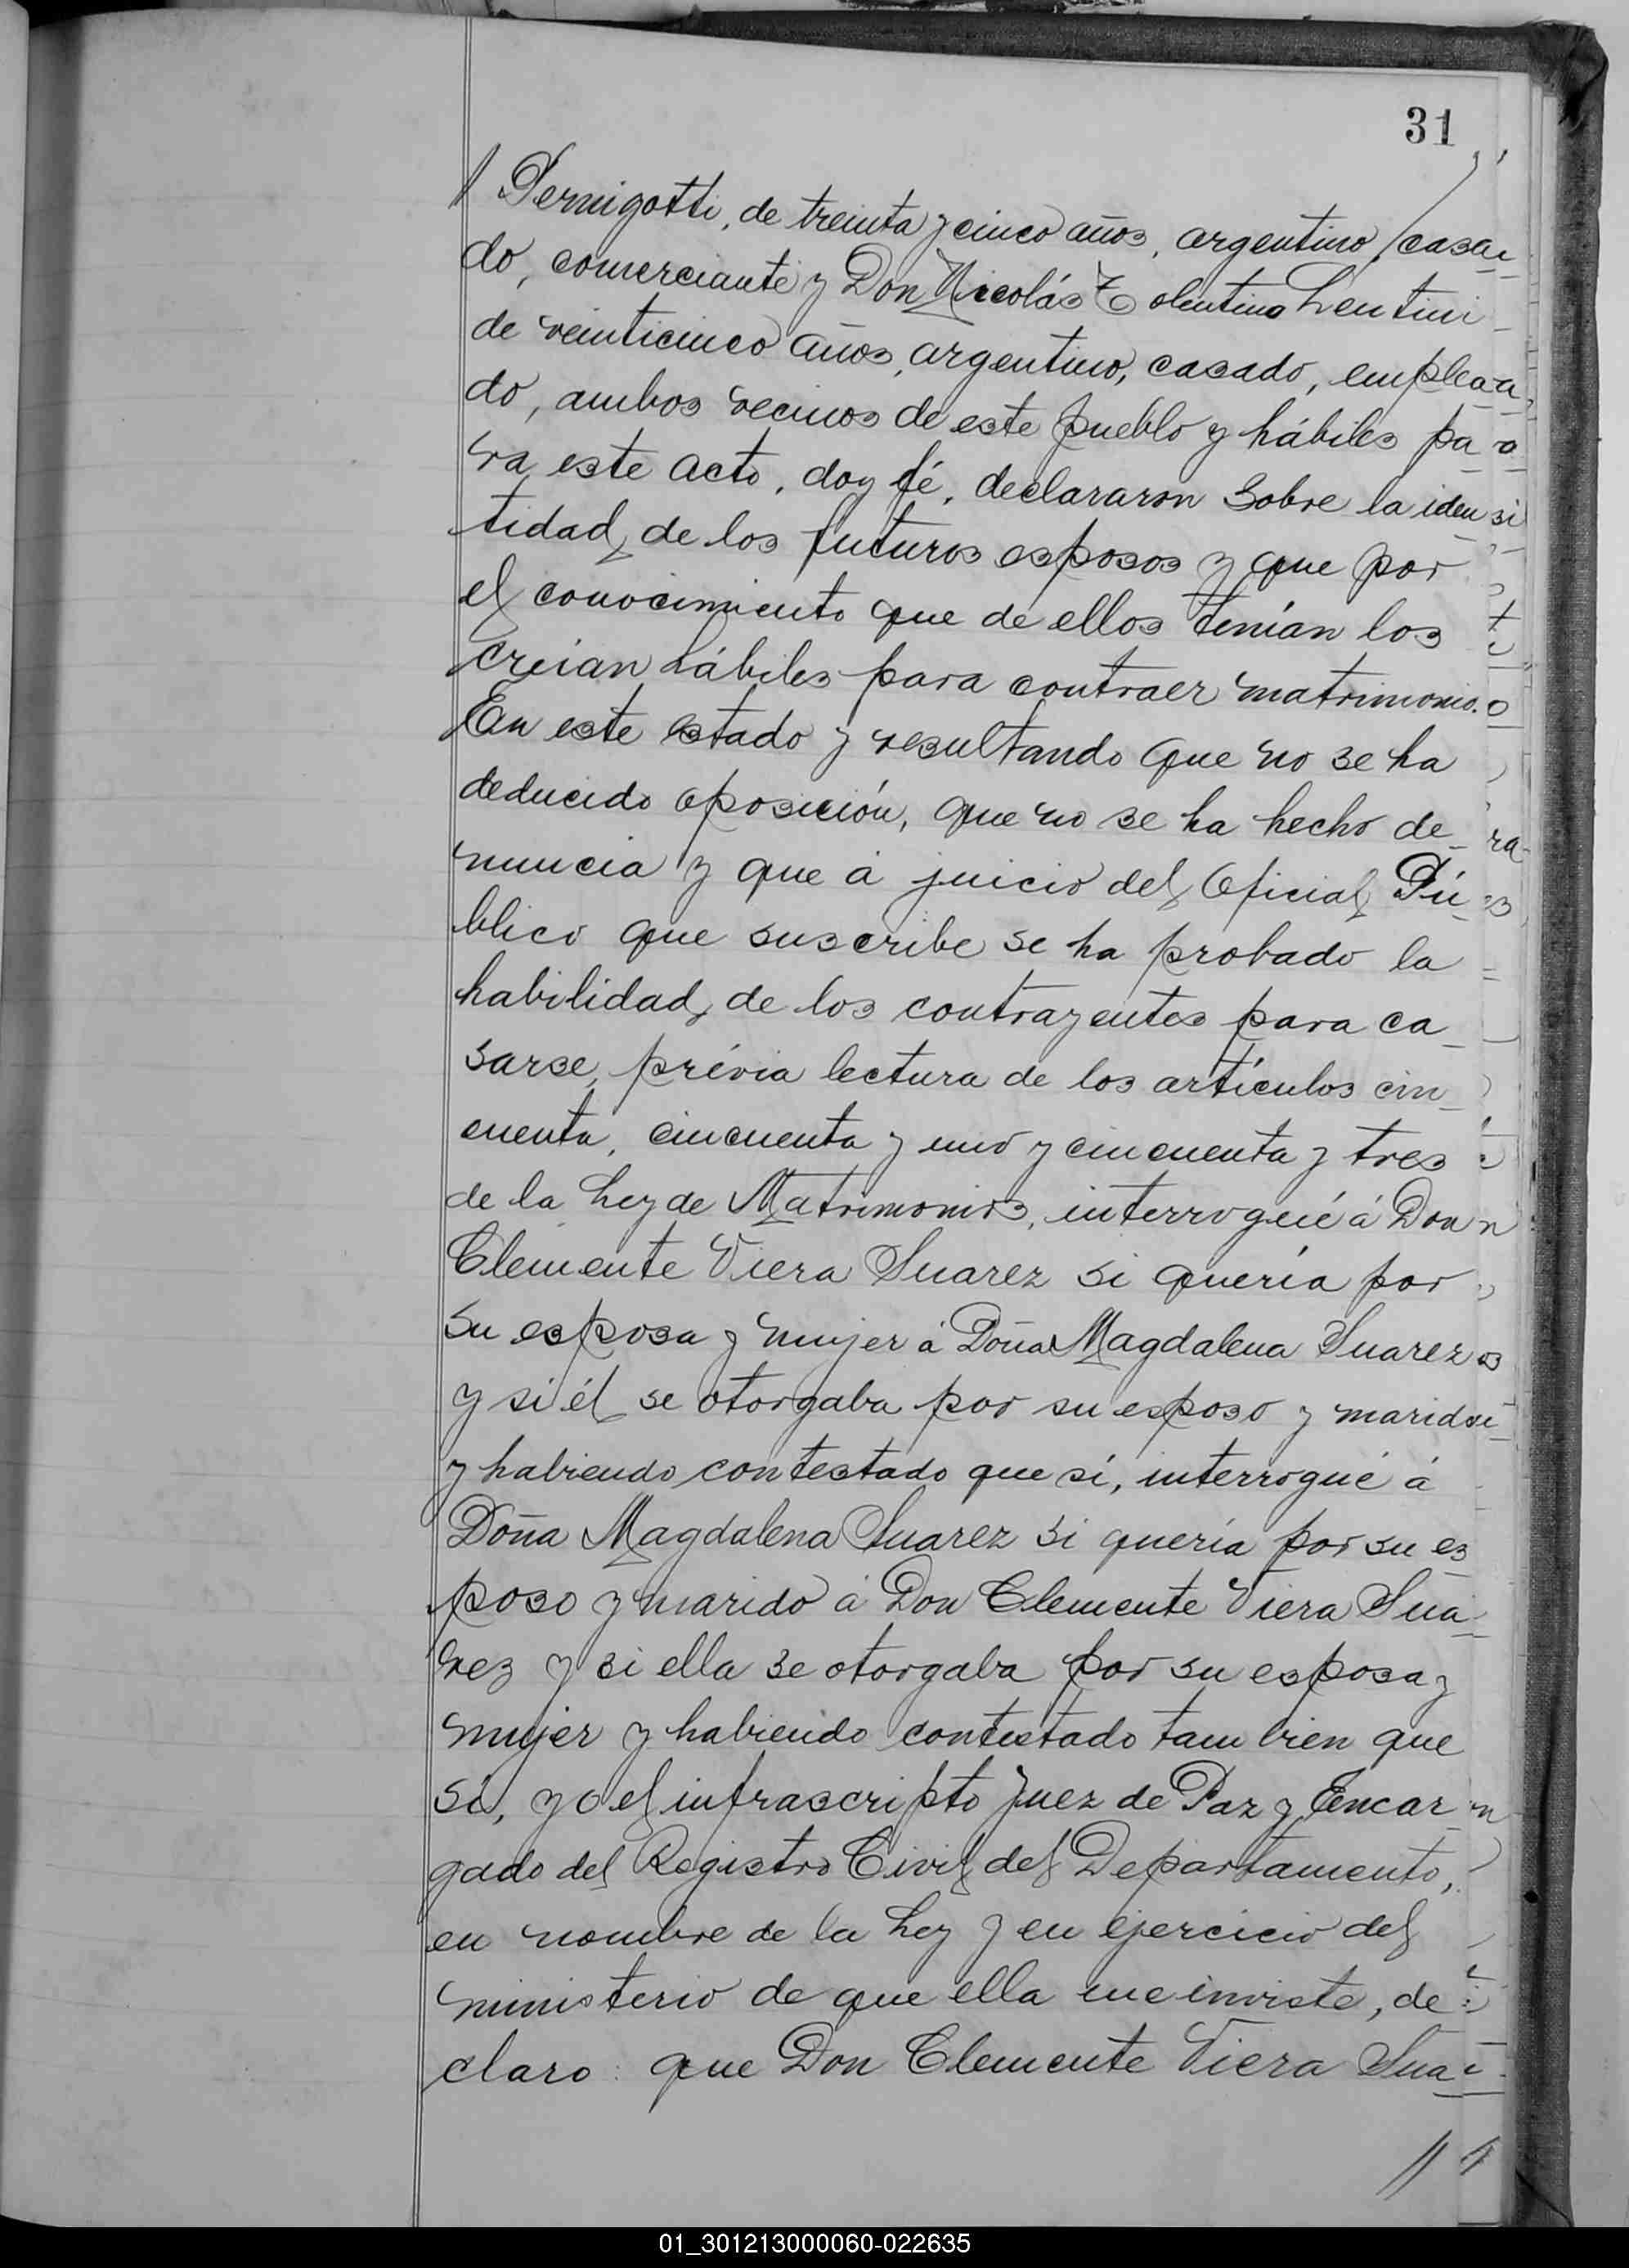 31
/ Pernigotti, de treinta y cinco años, argentino, casa_
do, comerciante y Don Nicolás Tolentino Lentini
de veinticinco años, argentino, casado, emplea_
do, ambos vecinos de este pueblo y hábiles pa_
ra este acto, doy fé, declararon sobre la iden_
tidad de los futuros esposos y que por
el conocimiento que de ellos tenían los
creian hábiles para contraer matrimonio.
En este estado y resultando que no se ha
deducido oposición, que no se ha hecho de_
nuncia y que á juicio del Oficial Pú_
blico que suscribe se ha probado la
habilidad de los contrayentes para ca_
sarse, prévia lectura de los artículos cin_
cuenta, cincuenta y uno y cincuenta y tres
de la Ley de Matrimonios, interrogué á Don
Clemente Viera Suarez si quería por
su esposa y mujer á Doña Magdalena Suarez
y si él se otorgaba por su esposo y marido
y habiendo contestado que sí, interrogué á
Doña Magdalena Suarez si quería por su es_
poso y marido á Don Clemente Viera Sua_
rez y si ella se otorgaba por su esposa y
mujer y habiendo contestado tambien que
sí, yo el infrascripto Juez de Paz y Encar_
gado del Registro Civil del Departamento,
en nombre de la Ley y en ejercicio del
ministerio de que ella me inviste, de_
claro: que Don Clemente Viera Sua_
//
01_301213000060-022635